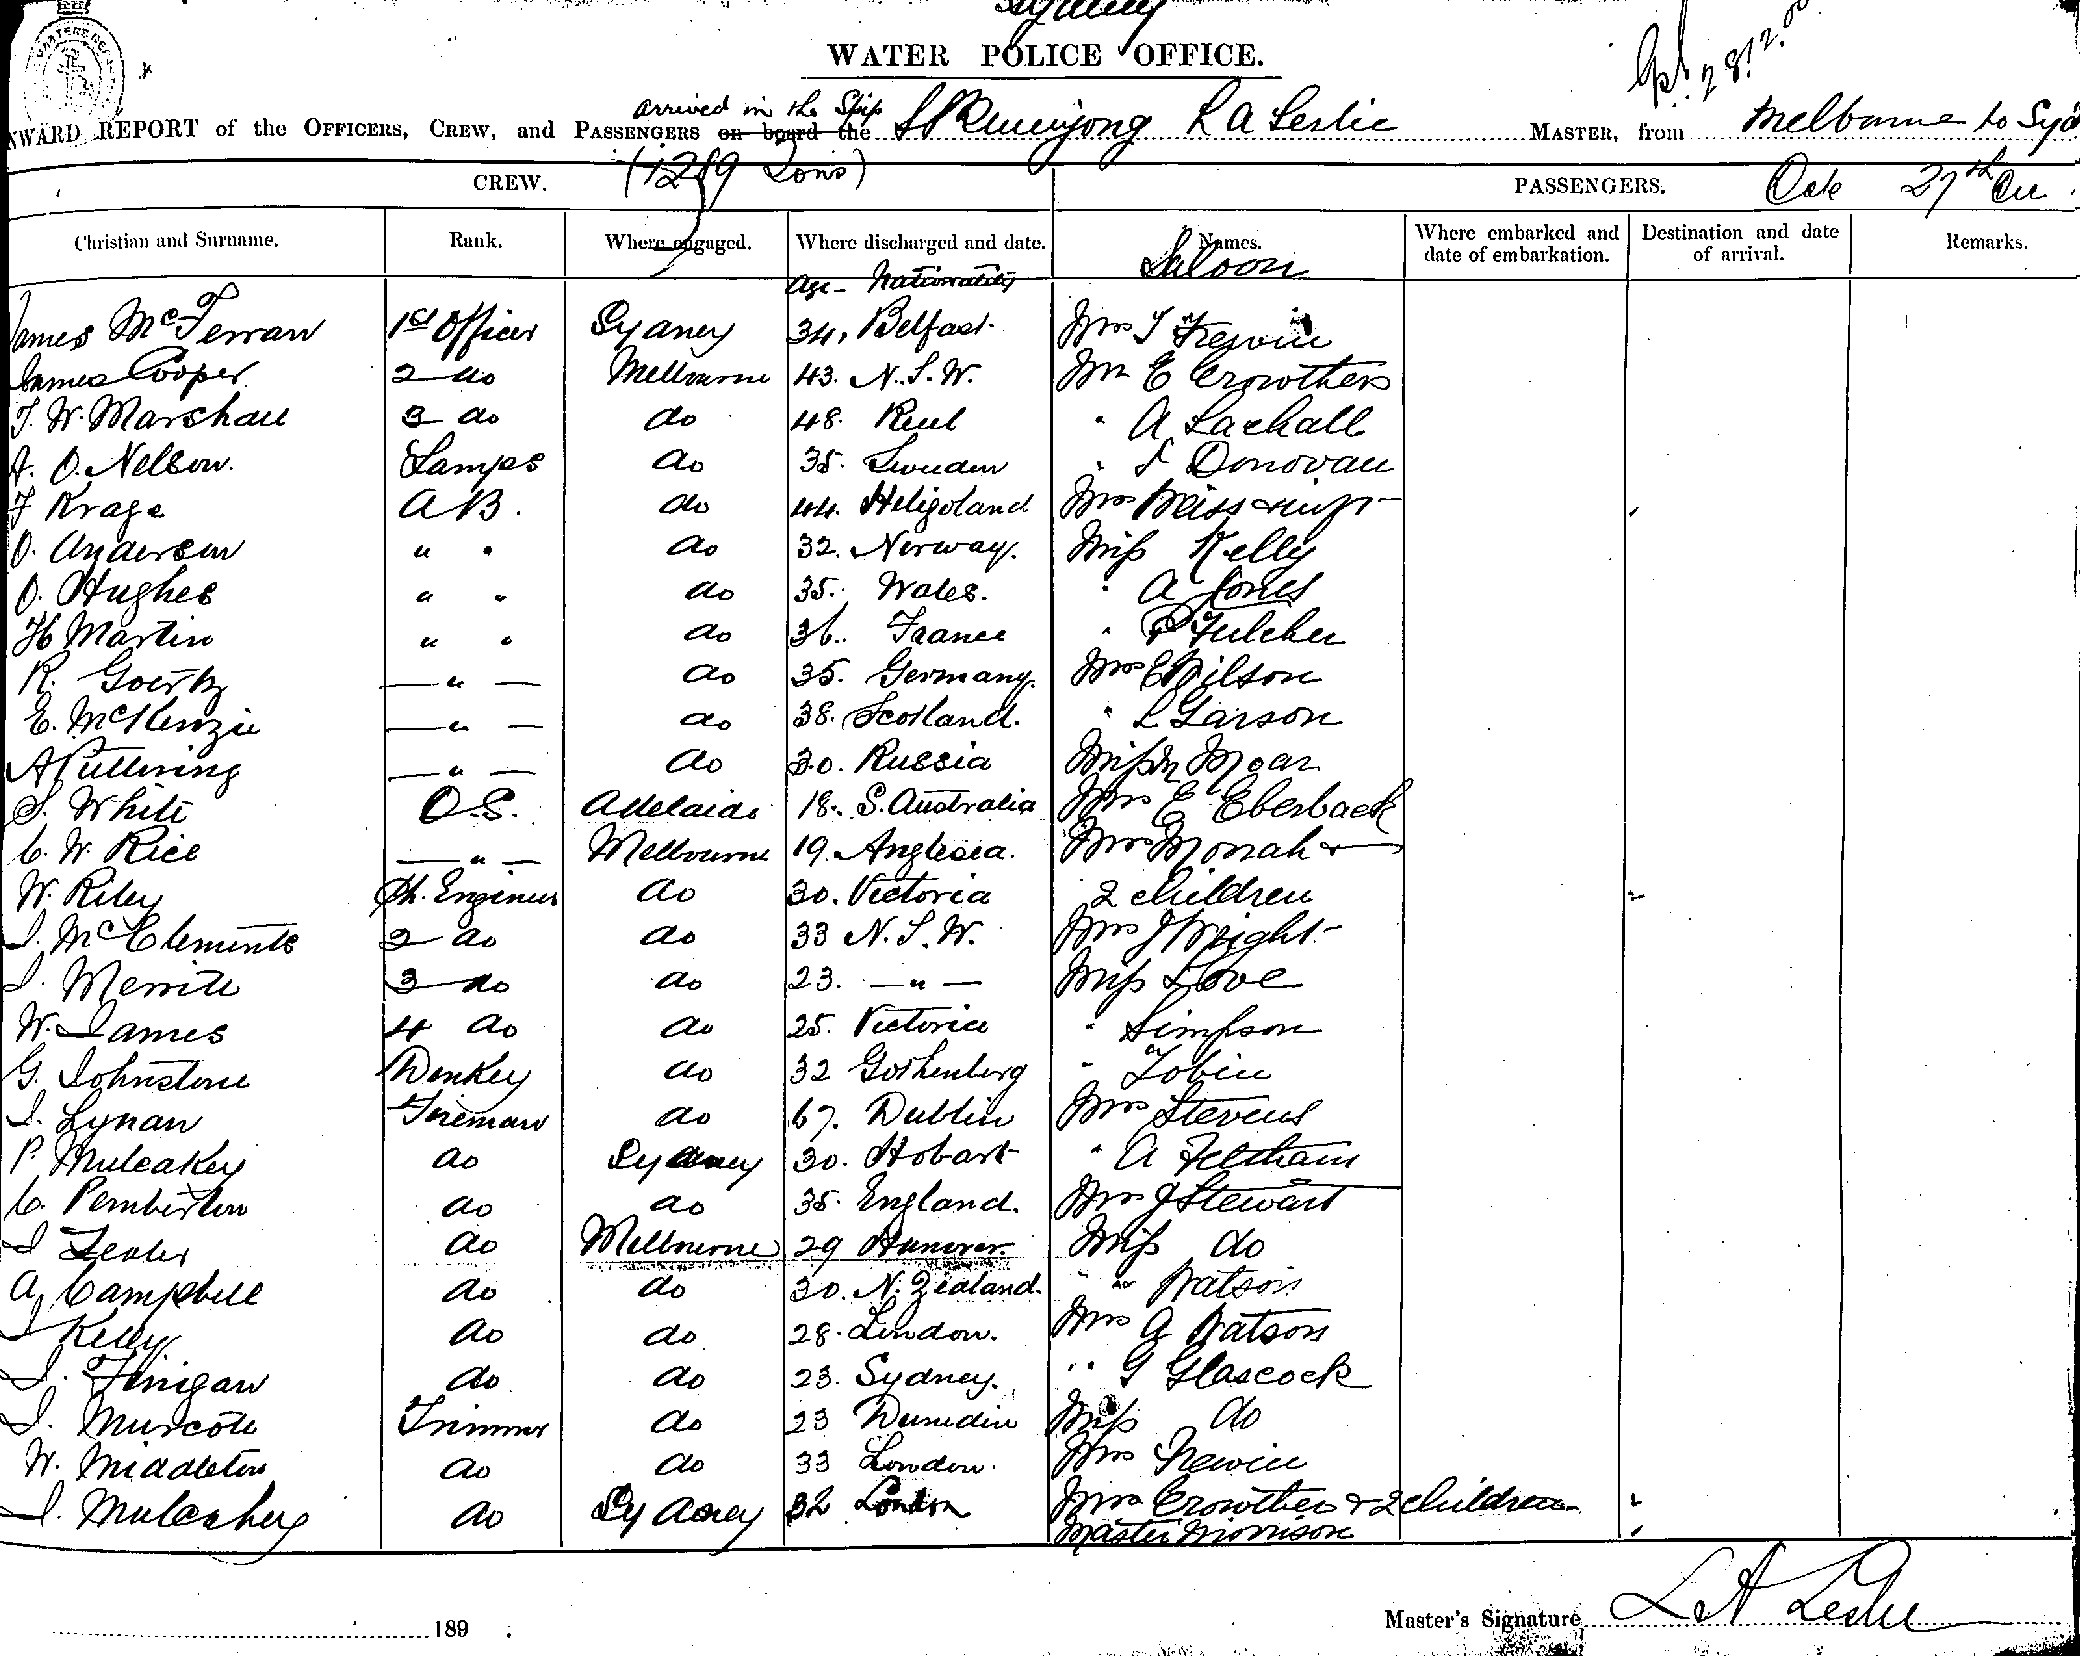 Sydney
WATER POLICE OFFICE.
arrived in the Ship
INWARD REPORT of the OFFICERS, CREW, and PASSENGERS on board the SS L A Leslie MASTER, from Melbourne to Syd
CREW. Tons) PASSENGERS. Date 27th Dec
Christian and Surname. Rank. Where engaged. Where discharged and date. Names. Where embarked and date of embarkation. Destination and date of arrival. Remarks.
Age - Nationality Saloon
James McFerran 1st Officer Sydney 34. Belfast. Mrs Frewin
James Cooper. 2 do Melbourne 43. N.S.W. Mr E Crowther
W. Marshall 3 do do 48. " A
O. Nelson. Lamps do 35. Sweden " Donovan
F Krage A B. do 44. Heligoland Mrs
O. Anderson " " do 32. Norway. Miss Kelly
O. Hughes " " do 35. Wales. " A Jones
H Martin " " do 36. France " Fulcher
R. — " — do 35. Germany. Mrs E Wilson
E. McKenzie — " — do 38. Scotland. " L Larson
A — " — do 30. Russia Miss Moar
S. White O.S. Adelaide 18. S. Australia Mrs E Eberback
C. W. Rice — " — Melbourne 19. Anglesea. Mrs Monah &
W. Riley Ch. Engineer do 30. Victoria 2 children
J. McClements 2 do do 33 N.S.W. Mrs J Wright
J. Merritt 3 do do 23. — " — Miss Love
W. James 4 do do 25. Victoria " Simpson
G. Johnstone Donkey do 32 Gothenberg " Tobin
J. Lynan Fireman do 67. Dublin Mrs Stevens
P. Mulcakey do Sydney 30. Hobart " A Feltham
C. Pemberton do do 35. England. Mrs J Stewart
J do Melbourne 29 Hanover. Miss do
A Campbell do do 30. N. Zealand. " Watson
J Kelly do do 28. London. Mrs G Watson
J. Finigan do do 23. Sydney. " G Glascock
J. Murcote Trimmer do 23 Dunedin Miss do
W. Middleton do do 33 London. Mrs Frewin
J. Mulcahey do Sydney 32 London Mrs Crowther & 2 children
Master Morrison
189 Master's Signature L A Leslie